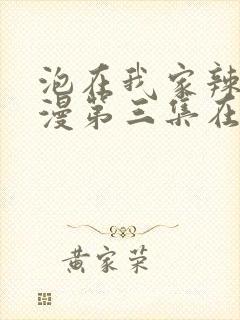 泡在我家辣
漫第三集在
黄家荣